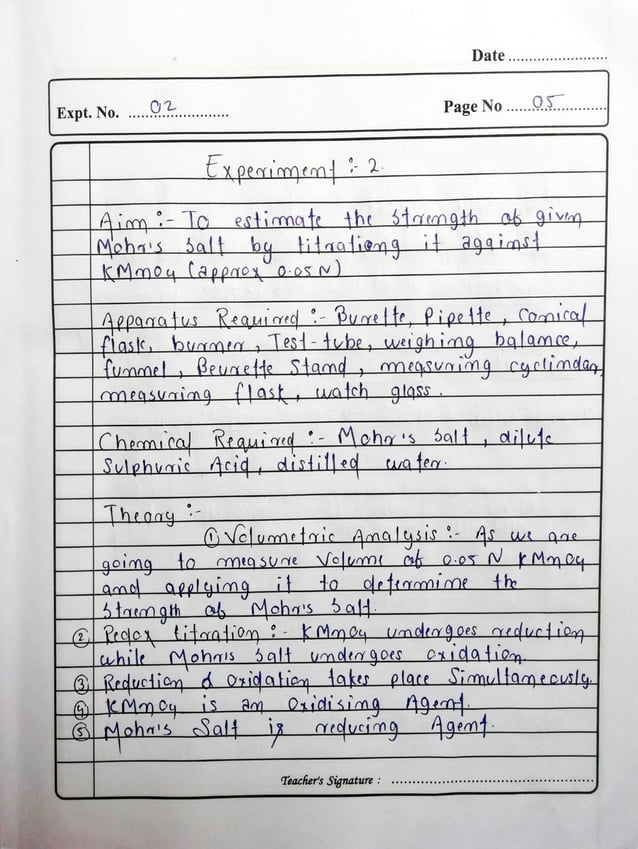 Date ........................
Expt. No. ....02....................
Page No ......05..............
Experiment :- 2.
Aim :- To estimate the strength of given
Mohr's salt by titrationg it against
KMnO4 (approx 0.05 N)
Apparatus Required :- Burette, Pipette, Conical
flask, burner, Test-tube, weighing balance,
funnel, Beurette Stand, measuring cyclindar,
measuring flask, watch glass.
Chemical Required :- Mohr's salt, dilute
Sulphuric Acid, distilled water.
Theory :-
① Volumetric Analysis :- As we are
going to measure Volume of 0.05 N KMnO4
and applying it to determine the
Strength of Mohr's Salt.
② Redox titration :- KMnO4 undergoes reduction
while Mohr's salt undergoes oxidation.
③ Reduction & Oxidation takes place Simultaneously.
④ KMnO4 is an Oxidising Agent.
⑤ Mohr's Salt is reducing Agent.
Teacher's Signature : ................................................